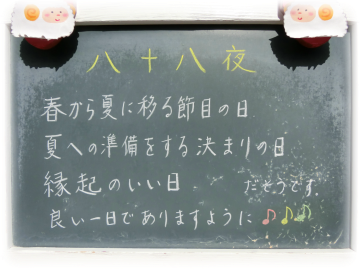 八十八夜
春から夏に移る節目の日
夏への準備をする決まりの日
縁起のいい日 だそうです。
良い一日でありますように♪♪♪